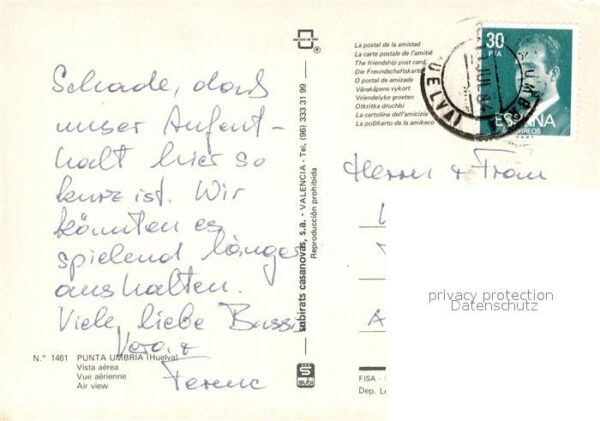 Schade, dass
unser Aufent-
halt hier so
kurz ist. Wir
könnten es
spielend länger
aushalten.
Viele liebe Bussi
Vera &
Ferenc
N.° 1461 PUNTA UMBRIA (Huelva)
Vista aérea
Vue aérienne
Air view
subirats casanovas, s.a. - VALENCIA - Tel. (96) 333 31 99 -
Reproducción prohibida
subi
La postal de la amistad
La carte postale de l'amitié
The friendship post card
Die Freundschaftskarte
O postal de amizade
Vänskapens vykort
Vriendelyke groeten
Otkritka druchbi
La cartolina dell'amicizia
La poŝtkarto de la amikeco
30
PTA
ESPAÑA
CORREOS
Herrn & Frau
A
privacy protection
Datenschutz
FISA -
Dep. Le